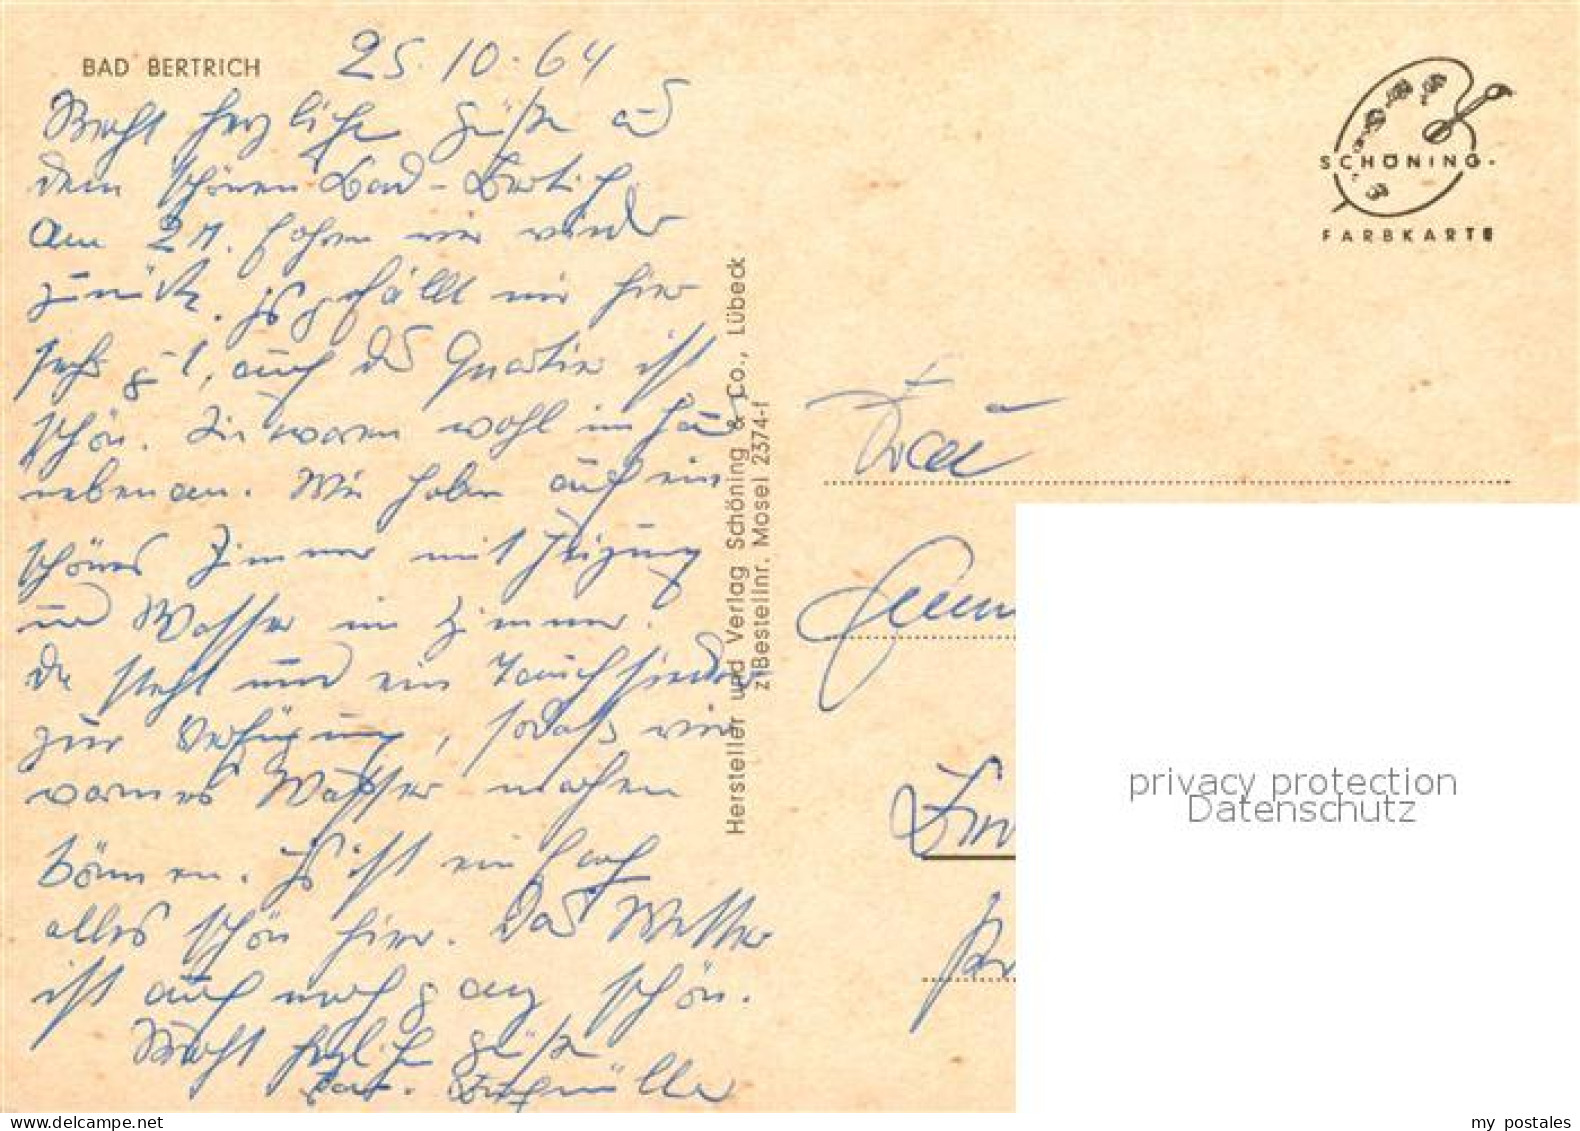 BAD BERTRICH
25.10.64
Recht herzliche Grüße aus
dem schönen Bad-Bertrich.
Am 2 11. fahren wir wieder
zurück. Es gefällt mir hier
sehr gut, auch das Quartier ist
schön. Sie waren wohl im Haus
nebenan. Wir haben auch ein
schönes Zimmer mit Heizung
und Wasser im Zimmer.
Da steht und ein Tauchsieder
zur Verfügung, sodass wir
warmes Wasser machen
können. Es ist einfach
alles schön hier. Das Wetter
ist auch noch ganz schön.
Recht herzliche Grüße
SCHÖNING·
FARBKARTE
Hersteller und Verlag Schöning & Co., Lübeck
Bestellnr. Mosel 2374-f
Frau
privacy protection
Datenschutz
my postales
www.delcampe.net